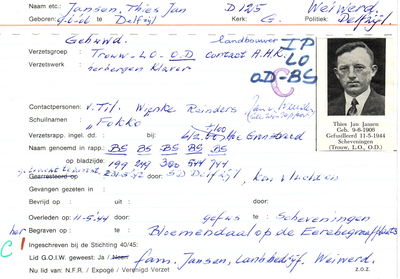 Naam etc.: Jansen, Thies Jan D 125 Weiwerd.
Geboren: 9.6.06 te Delfzijl Kerk: G. Politiek: Delfzijl.
Gehuwd. landbouwer
Verzetsgroep : Trouw-LO-O.D contact A.H.K. IP
Verzetswerk : LO
OD-BS
C
Contactpersonen: v. Til. Wienke Reinders
Schuilnaam : "Fokko"
Verzetsrapp. ingl. dd.: bij:
Naam genoemd in rapp.: BS BS BS BS BS
op bladzijde: 199 219 380 544 744
Gearresteerd op : door: SD Delfzijl, kon vluchten
Gevangen gezeten in :
Bevrijd op : uit : door:
Overleden op: 11-5-44 door: gefus. te: Scheveningen
her Begraven op : te: Bloemendaal op de Eerebegraafplaats
C! Ingeschreven bij de Stichting 40/45:
Lid G.O.I.W. geweest: Ja / Neen fam. Jansen, Landbedijf. Weiwerd.
Nu lid van: N.F.R. / Expogé / Verenigd Verzet z.o.z.
Thies Jan Jansen
Geb. 9-6-1906
Gefusilleerd 11-5-1944
Scheveningen
(Trouw, L.O., O.D.)